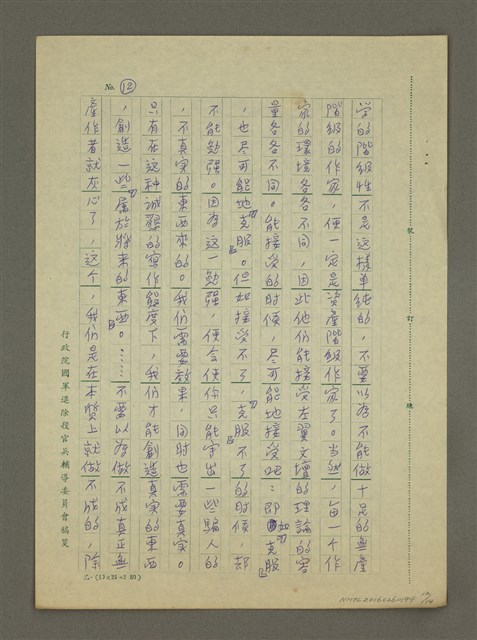 No. 12
学的階級性不是这樣單純的，不要以为不能做十足的無產
階級的作家，便一定是資產階級作家了。当然，每一个作
家的環境各各不同，因此他们能接受左翼文壇的理論的容
量各各不同。能接受的时候，尽可能地接受吧：即如「克服
」，也尽可能地「克服」。但如接受不了，「克服」不了的时候，却
不能勉強。因为这一勉強，便会使你只能写出一些騙人的
，不真実的東西來的。我们需要效果，同时也需要真実。
只有在这种诚懇的寫作態度下，我们才能創造真実的東西
，創造一些「属於將來的東西」。……不要以为做不成真正無
產作者就灰心了，这个，我们是在本質上就做不成的，除
行政院國軍退除役官兵輔導委員會稿箋
乙-(1)×25=2 50)
裝
訂
線